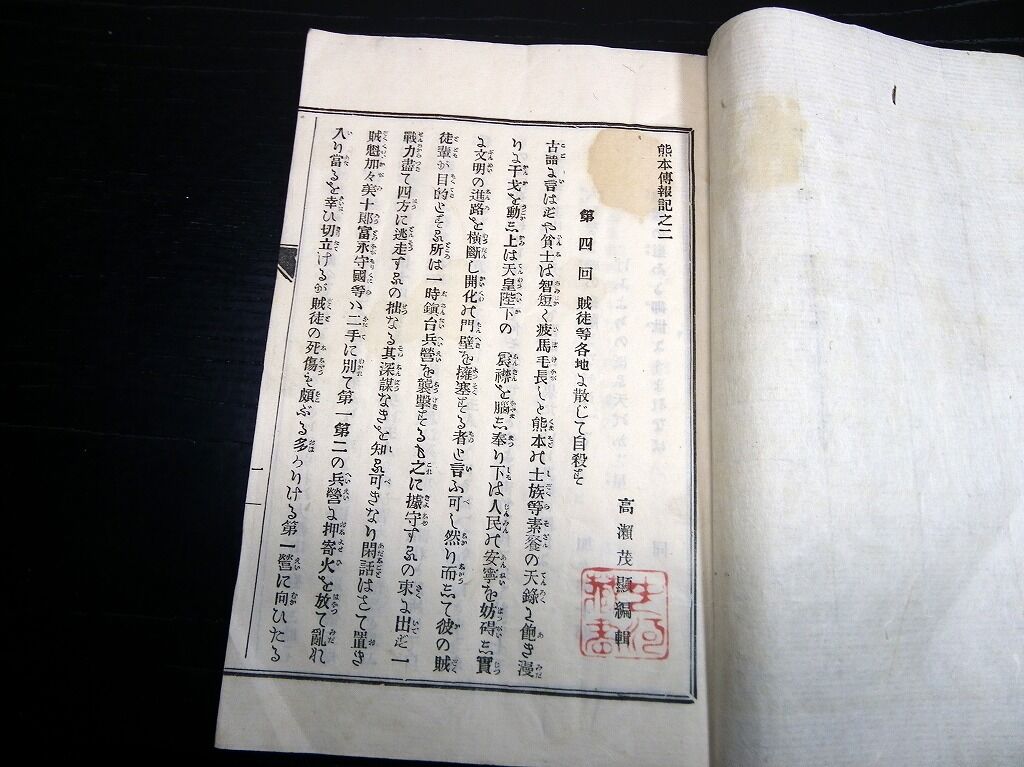 熊本傳報記之二
高瀬茂顯編輯
第四回 賊徒等各地に散じて自殺す
古語に言はずや貧士は智短く疲馬毛長しと熊本の士族等素餐の天錄に飽き漫
りに干戈を動し上は天皇陛下の 宸襟を腦し奉り下は人民の安寧を妨碍し實
に文明の進路を橫斷し開化の門壁を擁塞する者と言ふ可し然り而して彼の賊
徒輩が目的とする所は一時鎮台兵營を襲擊するも之に據守するの束に出ず一
戰力盡て四方に逃走するの拙なる其深謀なきを知る可きなり閑話はさて置き
賊魁加々美十郎富永守國等ハ二手に別て第一第二の兵營に押寄火を放て亂れ
入り當るを幸ひ切立けるが賊徒の死傷も頗ぶる多かりける第一營に向ひたる
一